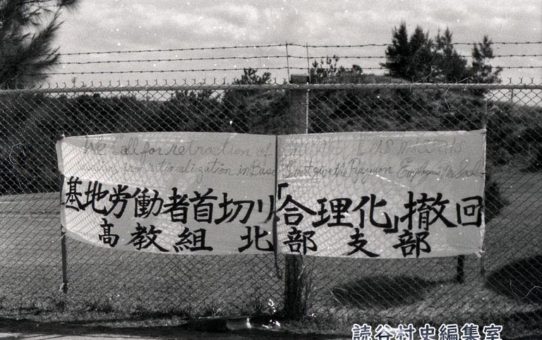 We call for retraction of
rationalization in Base
基地労働者首切り「合理化」撤回
高教組北部支部
読谷村史編集室